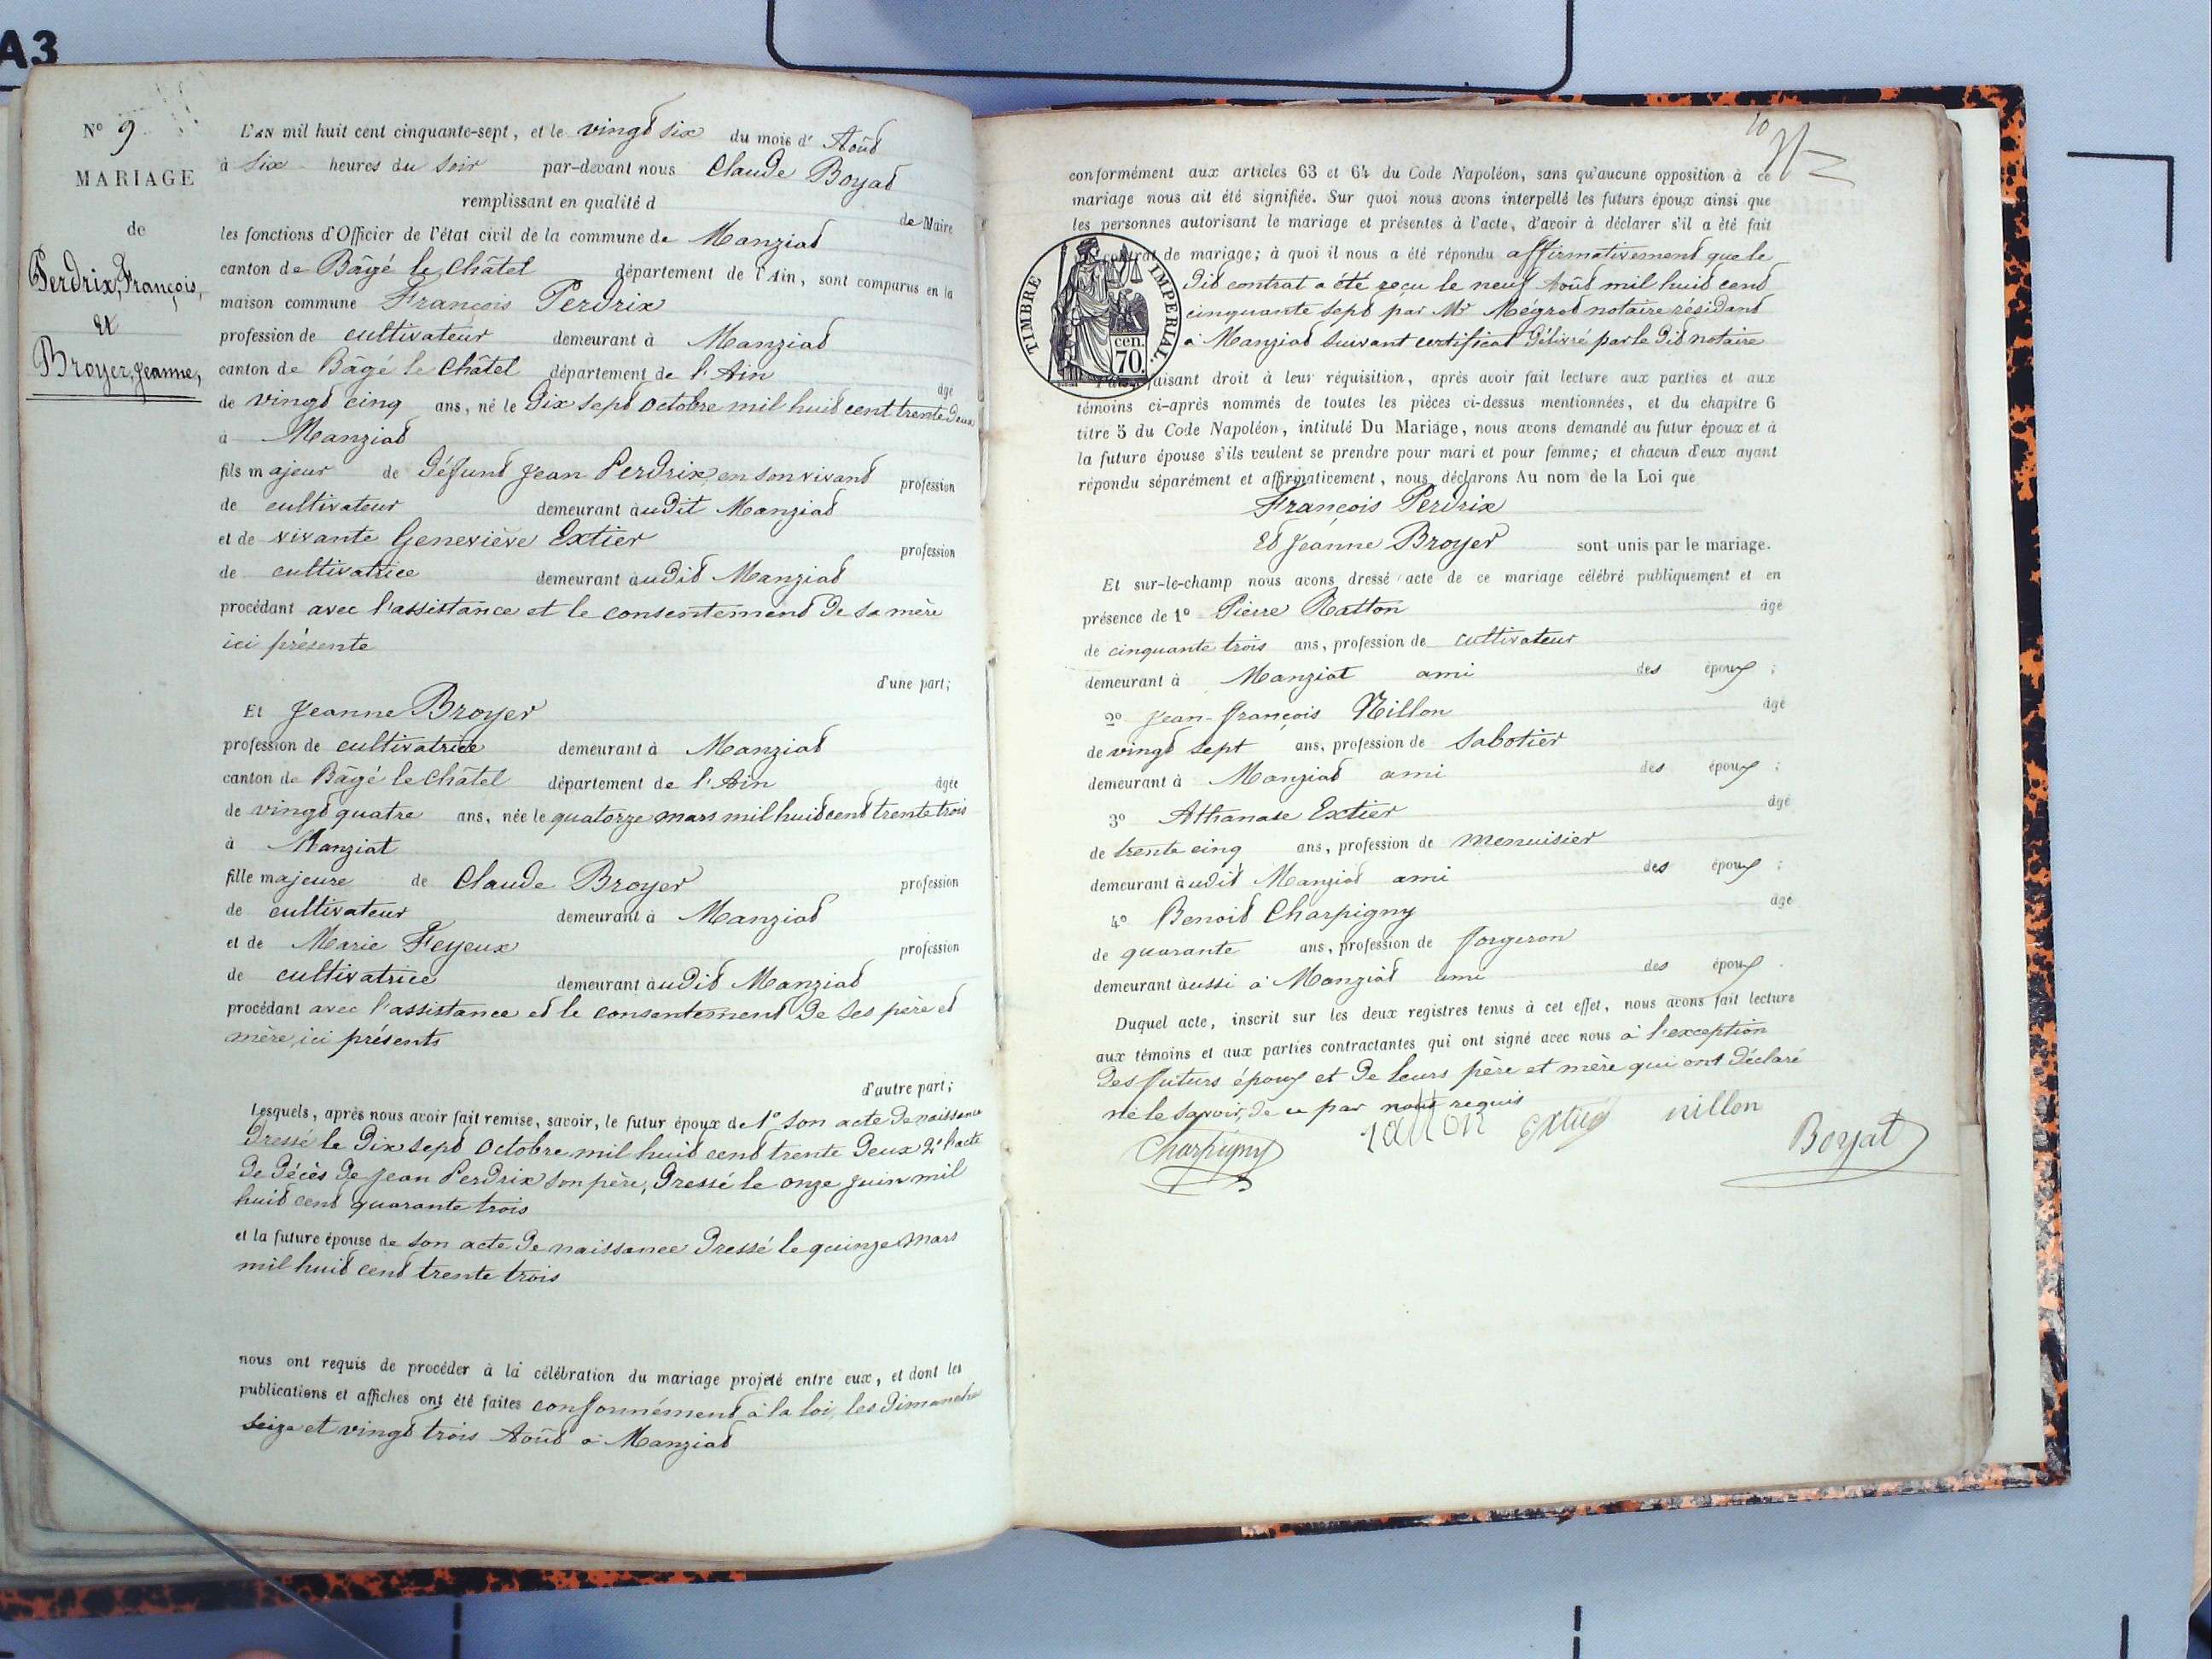 A3
N° 9
MARIAGE
de
Perdrix, François,
et
Broyer, Jeanne,
L'AN mil huit cent cinquante-sept, et le vingt six du mois d' Août
à six heures du soir par-devant nous Claude Boyat
remplissant en qualité d de Maire
les fonctions d'Officier de l'état civil de la commune de Manziat
canton de Bâgé le Châtel département de l'Ain, sont comparus en la
maison commune François Perdrix
profession de cultivateur demeurant à Manziat
canton de Bâgé le Châtel département de l'Ain âgé
de vingt cinq ans, né le dix sept Octobre mil huit cent trente deux
à Manziat
fils majeur de défunt Jean Perdrix, en son vivant profession
de cultivateur demeurant audit Manziat
et de vivante Geneviève Extier profession
de cultivatrice demeurant audit Manziat
procédant avec l'assistance et le consentement de sa mère
ici présente
d'une part;
Et Jeanne Broyer
profession de cultivatrice demeurant à Manziat
canton de Bâgé le Châtel département de l'Ain âgée
de vingt quatre ans, née le quatorze mars mil huit cent trente trois
à Manziat
fille majeure de Claude Broyer profession
de cultivateur demeurant à Manziat
et de Marie Feyeux profession
de cultivatrice demeurant audit Manziat
procédant avec l'assistance et le consentement de ses père et
mère, ici présents
d'autre part;
Lesquels, après nous avoir fait remise, savoir, le futur époux de 1° son acte de naissance
dressé le dix sept Octobre mil huit cent trente deux 2° l'acte
de décès de Jean Perdrix son père, dressé le onze juin mil
huit cent quarante trois
et la future épouse de son acte de naissance dressé le quinze mars
mil huit cent trente trois
nous ont requis de procéder à la célébration du mariage projeté entre eux, et dont les
publications et affiches ont été faites conformément à la loi, les dimanches
seize et vingt trois Août à Manziat
10
conformément aux articles 63 et 64 du Code Napoléon, sans qu'aucune opposition à ce
mariage nous ait été signifiée. Sur quoi nous avons interpellé les futurs époux ainsi que
les personnes autorisant le mariage et présentes à l'acte, d'avoir à déclarer s'il a été fait
contrat de mariage; à quoi il nous a été répondu affirmativement que le
dit contrat a été reçu le neuf Août mil huit cent
cinquante sept par Mr Mégrot notaire résidant
à Manziat suivant certificat délivré par le dit notaire
TIMBRE IMPERIAL.
cen.
70.
faisant droit à leur réquisition, après avoir fait lecture aux parties et aux
témoins ci-après nommés de toutes les pièces ci-dessus mentionnées, et du chapitre 6
titre 5 du Code Napoléon, intitulé Du Mariage, nous avons demandé au futur époux et à
la future épouse s'ils veulent se prendre pour mari et pour femme; et chacun d'eux ayant
répondu séparément et affirmativement, nous déclarons Au nom de la Loi que
François Perdrix
Et Jeanne Broyer sont unis par le mariage.
Et sur-le-champ nous avons dressé acte de ce mariage célébré publiquement et en
présence de 1° Pierre Ratton âgé
de cinquante trois ans, profession de cultivateur
demeurant à Manziat ami des époux ;
2° Jean-François Nillon âgé
de vingt sept ans, profession de sabotier
demeurant à Manziat ami des époux ;
3° Athanase Extier âgé
de trente cinq ans, profession de menuisier
demeurant audit Manziat ami des époux ;
4° Benoit Charpigny âgé
de quarante ans, profession de forgeron
demeurant aussi à Manziat ami des époux .
Duquel acte, inscrit sur les deux registres tenus à cet effet, nous avons fait lecture
aux témoins et aux parties contractantes qui ont signé avec nous à l'exception
des futurs époux et de leurs père et mère qui ont déclaré
ne le savoir, de ce par nous requis
Charpigny ratton Extier nillon Boyat